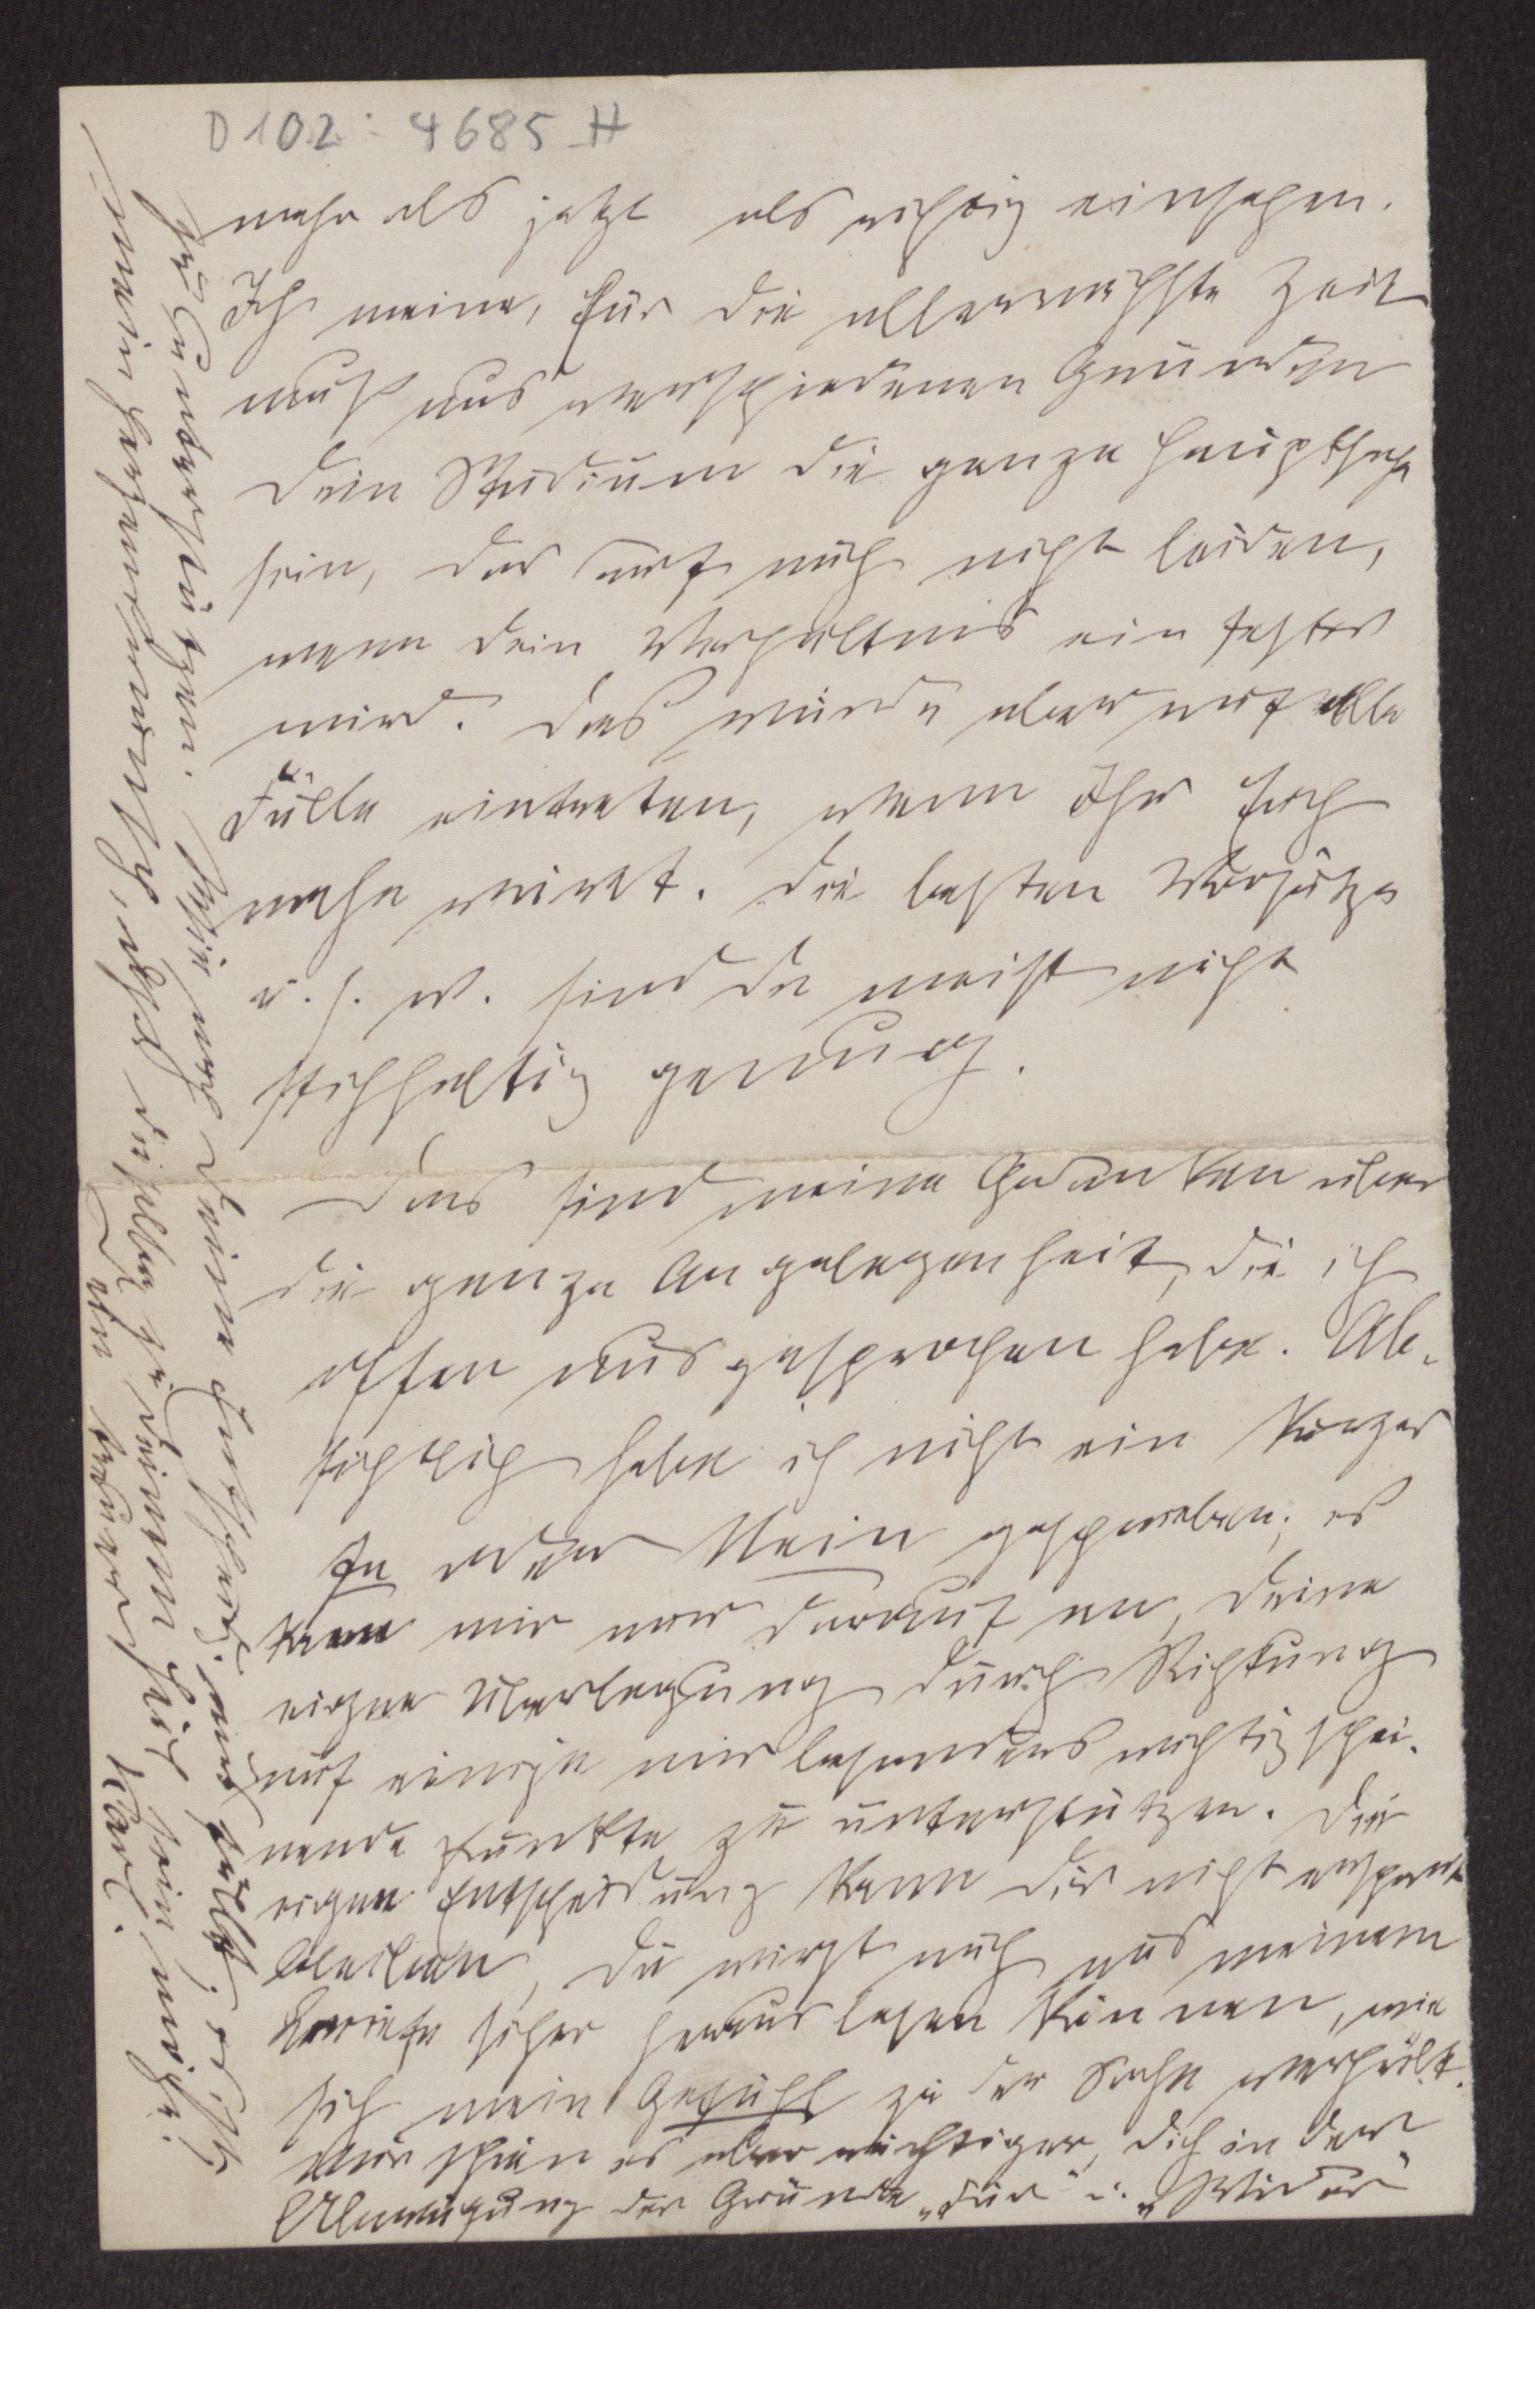 D 102 : 4685 H
mehr als jetzt als richtig einsehen.
Ich meine, für die allernächste Zeit
muß aus verschiedenen Gründen
Dein Studium die ganze Hauptsache
sein, das darf auch nicht leiden,
wenn Dein Verhältnis ein festes
wird. Das würde aber auf alle
Fälle eintreten, wenn Ihr Euch
nahe wirkt. Die besten Vorsätze
u. s. w. sind da meist nicht
stichhaltig genug.
Das sind meine Gedanken über
die ganze Angelegenheit, die ich
offen ausgesprochen habe. Ab-
sichtlich habe ich nicht ein kurzes
Ja oder Nein geschrieben; es
kam mir nur darauf an, Deine
eigne Überlegung durch Richtung
auf einige mir besonders wichtig schei-
nende Punkte zu unterstützen. Die
eigne Entscheidung kann Dir nicht erspart
bleiben, Du wirst auch aus meinem
Briefe sicher herauslesen können, wie
sich mein Gefühl zu der Sache verhält.
Mir schien es aber wichtiger, Dich in der
Abwägung der Gründe „Für“ u. „Wider“
zu unterstützen. Wie auch Deine Entscheid. ausfällt, es ist
mein Herzenswunsch, daß dieselbe zu Deinem Heil sein möge.
Dein treuer Karl.